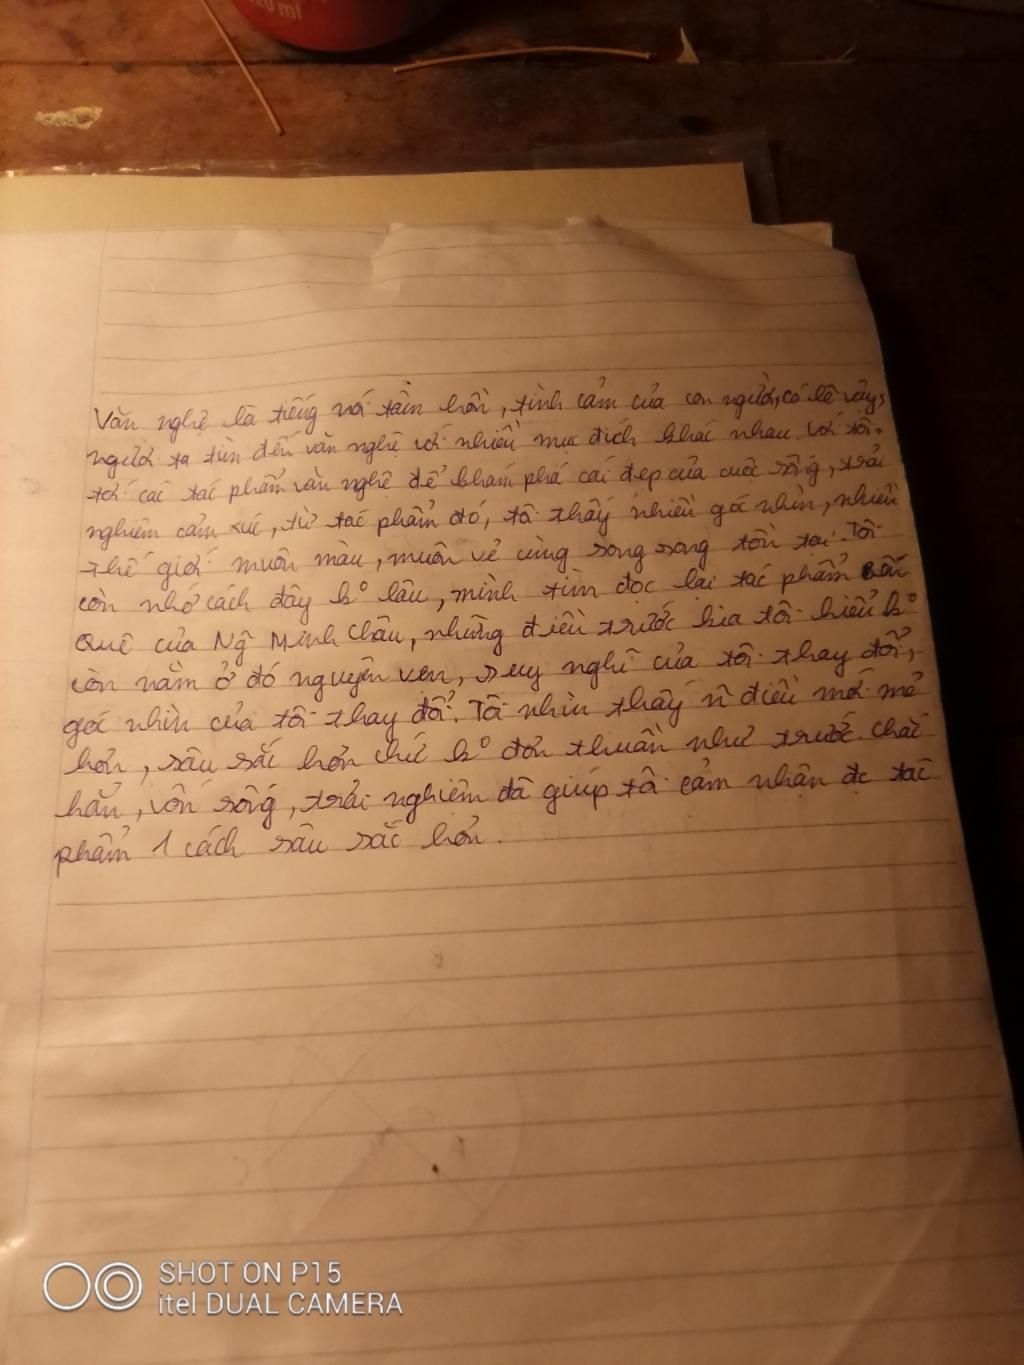 320 ml
Văn nghệ là tiếng nói tâm hồn, tình cảm của con người, có lẽ vậy,
người ta tìm đến văn nghệ với nhiều mục đích khác nhau. Với tôi,
tới các tác phẩm văn nghệ để khám phá cái đẹp của cuộc sống, trải
nghiệm cảm xúc, từ tác phẩm đó, tôi thấy nhiều góc nhìn, nhiều
thế giới muôn màu, muôn vẻ cùng song song tồn tại. Tôi
còn nhớ cách đây kº lâu, mình tìm đọc lại tác phẩm Bến
Quê của Ng Minh Châu, những điều trước kia tôi hiểu kº
còn nằm ở đó nguyên vẹn, suy nghĩ của tôi thay đổi,
góc nhìn của tôi thay đổi. Tôi nhìn thấy n điều mới mẻ
hơn, sâu sắc hơn chứ kº đơn thuần như trước. Chắc
hẳn, vốn sống, trải nghiệm đã giúp tôi cảm nhận đc tác
phẩm 1 cách sâu sắc hơn.
SHOT ON P15
itel DUAL CAMERA